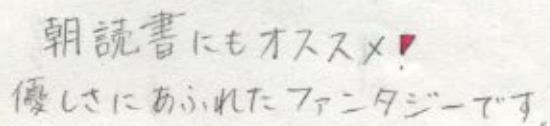 朝読書にもオススメ!
優しさにあふれたファンタジーです.